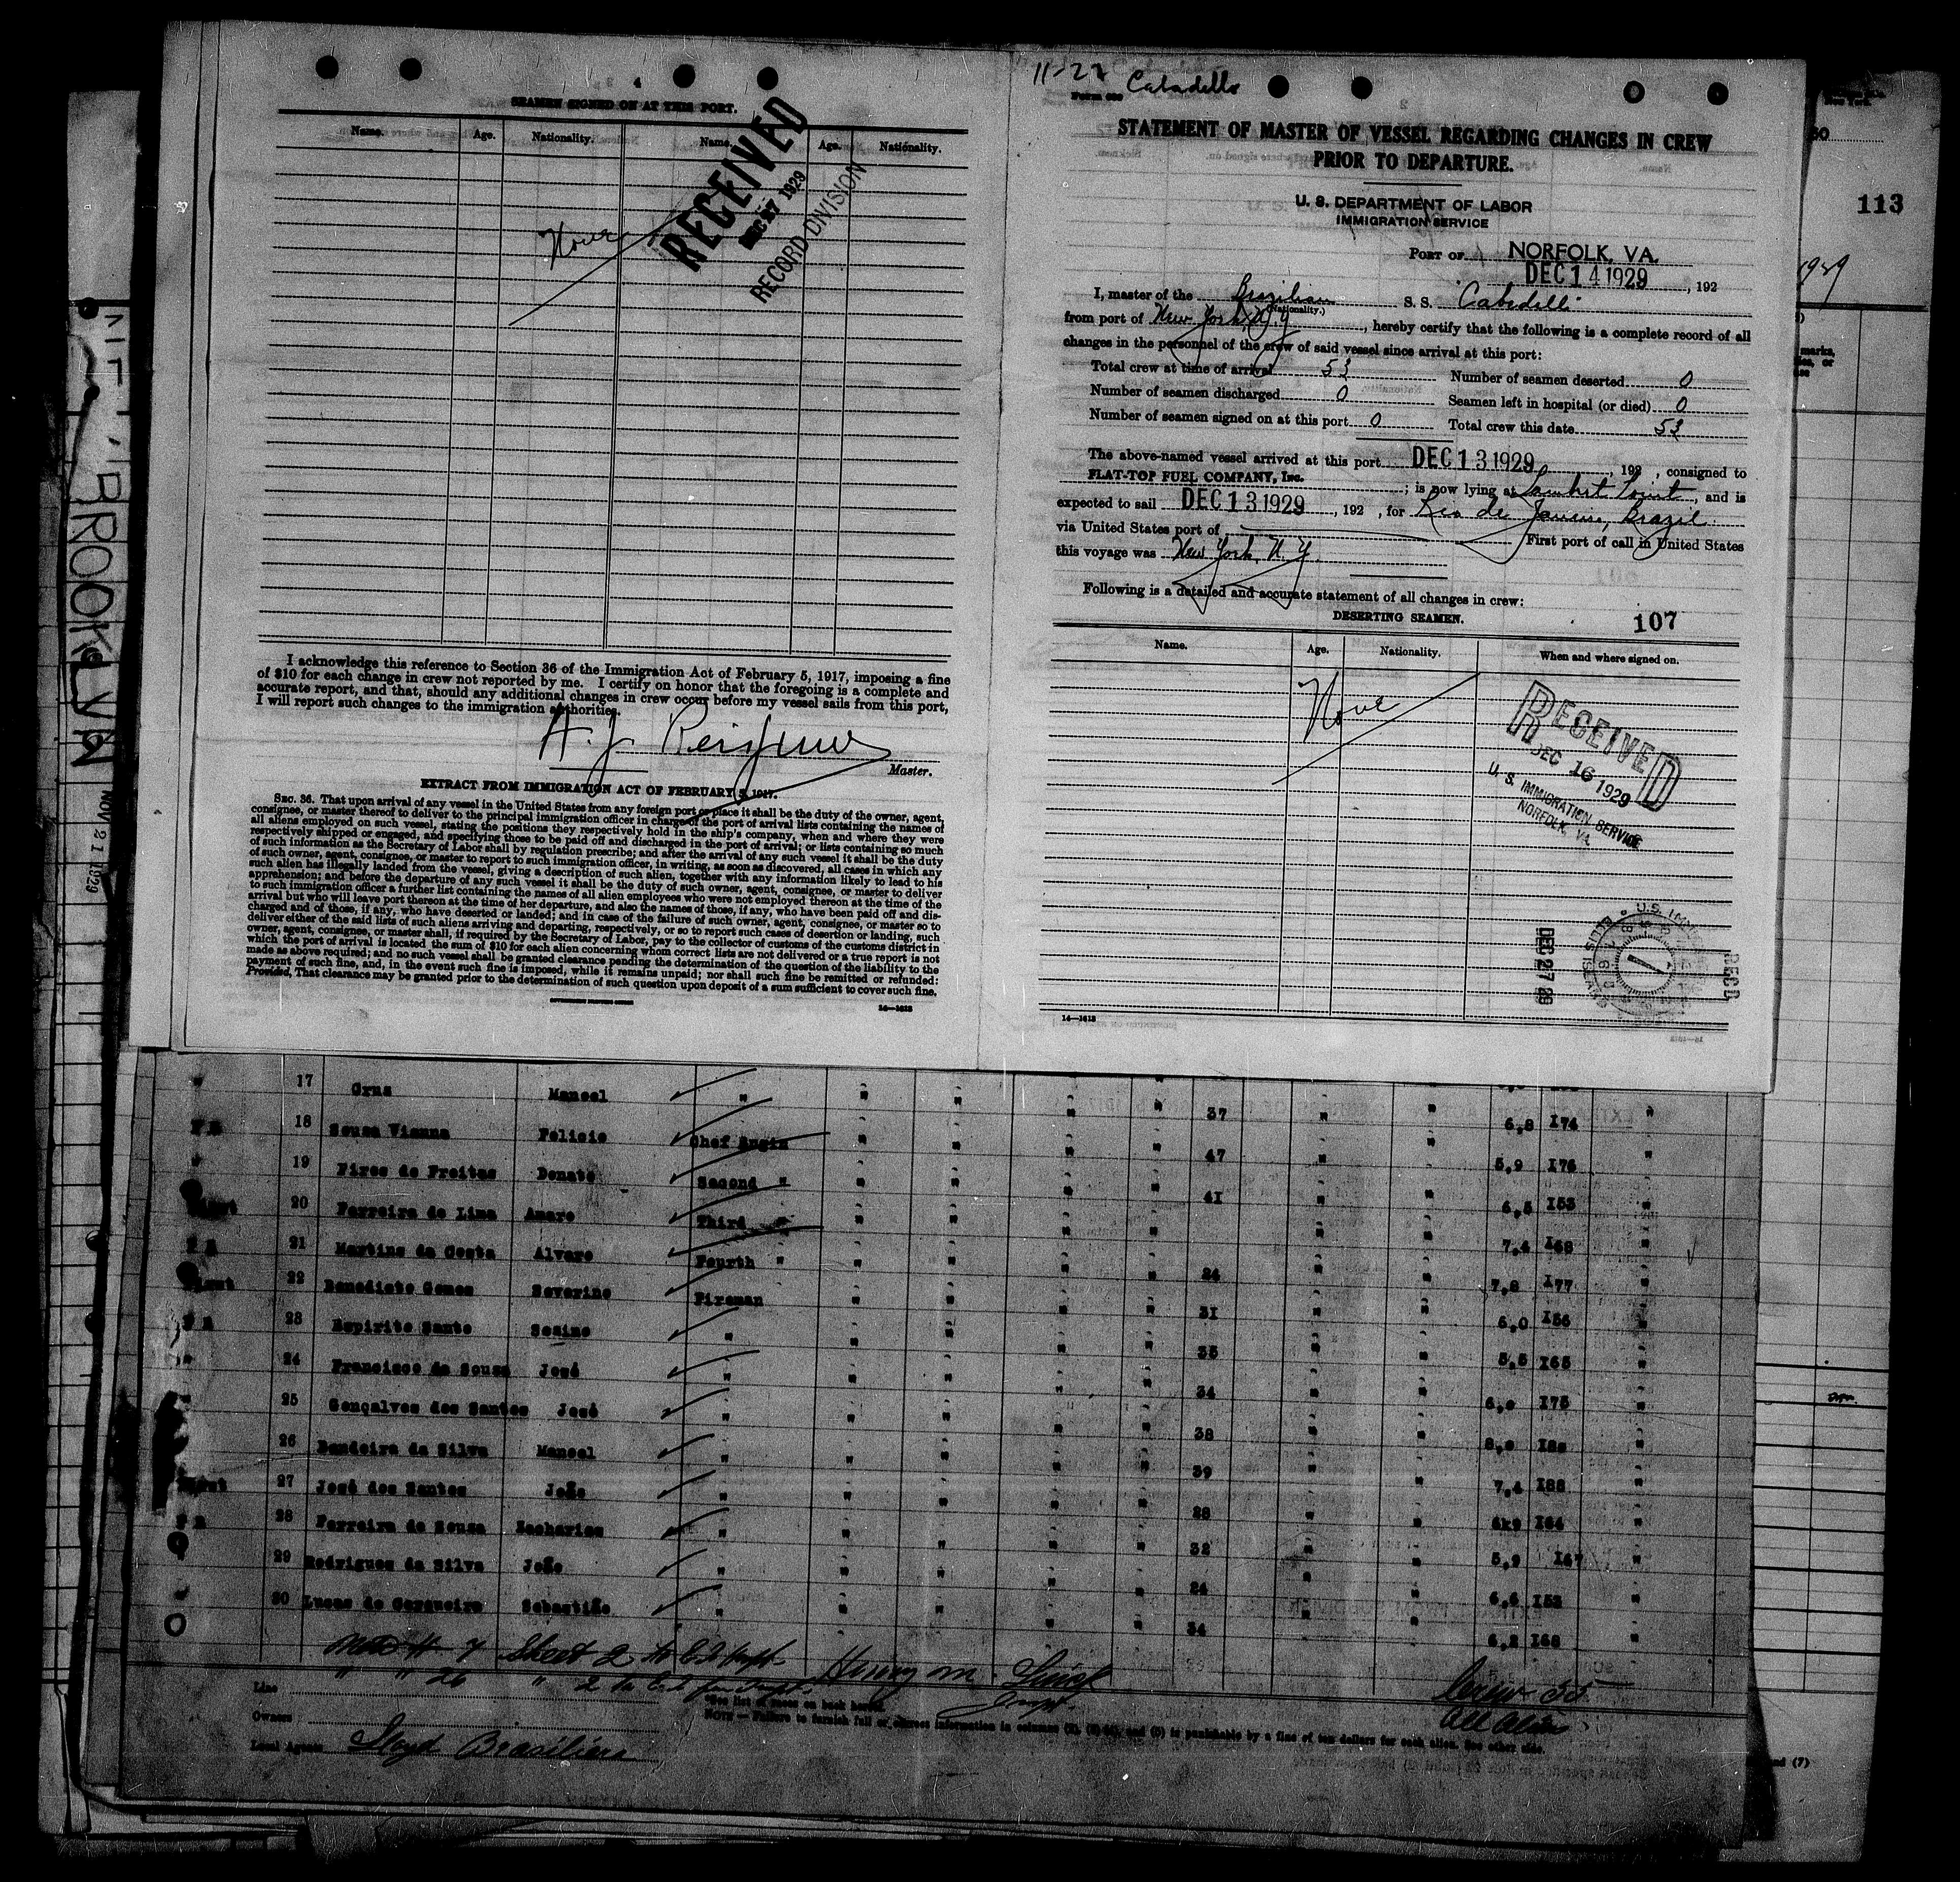 4
SEAMEN SIGNED ON AT THIS PORT.
Name. Age. Nationality. Name. Age. Nationality.
None
RECEIVED
DEC 27 1929
RECORD DIVISION
I acknowledge this reference to Section 36 of the Immigration Act of February 5, 1917, imposing a fine
of $10 for each change in crew not reported by me. I certify on honor that the foregoing is a complete and
accurate report, and that, should any additional changes in crew occur before my vessel sails from this port,
I will report such changes to the immigration authorities.
Master.
EXTRACT FROM IMMIGRATION ACT OF FEBRUARY 5, 1917.
SEC. 36. That upon arrival of any vessel in the United States from any foreign port or place it shall be the duty of the owner, agent,
consignee, or master thereof to deliver to the principal immigration officer in charge of the port of arrival lists containing the names of
all aliens employed on such vessel, stating the positions they respectively hold in the ship's company, when and where they were
respectively shipped or engaged, and specifying those to be paid off and discharged in the port of arrival; or lists containing so much
of such information as the Secretary of Labor shall by regulation prescribe; and after the arrival of any such vessel it shall be the duty
of such owner, agent, consignee, or master to report to such immigration officer, in writing, as soon as discovered, all cases in which any
such alien has illegally landed from the vessel, giving a description of such alien, together with any information likely to lead to his
apprehension; and before the departure of any such vessel it shall be the duty of such owner, agent, consignee, or master to deliver
to such immigration officer a further list containing the names of all alien employees who were not employed thereon at the time of the
arrival but who will leave port thereon at the time of her departure, and also the names of those, if any, who have been paid off and dis-
charged and of those, if any, who have deserted or landed; and in case of the failure of such owner, agent, consignee, or master so to
deliver either of the said lists of such aliens arriving and departing, respectively, or so to report such cases of desertion or landing, such
owner, agent, consignee, or master shall, if required by the Secretary of Labor, pay to the collector of customs of the customs district in
which the port of arrival is located the sum of $10 for each alien concerning whom correct lists are not delivered or a true report is not
made as above required; and no such vessel shall be granted clearance pending the determination of the question of the liability to the
payment of such fine, and, in the event such fine is imposed, while it remains unpaid; nor shall such fine be remitted or refunded:
Provided, That clearance may be granted prior to the determination of such question upon deposit of a sum sufficient to cover such fine.
14—1613
11-27 Cabadello
STATEMENT OF MASTER OF VESSEL REGARDING CHANGES IN CREW
PRIOR TO DEPARTURE.
U. S. DEPARTMENT OF LABOR
IMMIGRATION SERVICE
PORT OF NORFOLK, VA.
DEC 14 1929, 192
I, master of the Brazilian S. S. Cabedello
(Nationality.)
from port of New York, N.Y., hereby certify that the following is a complete record of all
changes in the personnel of the crew of said vessel since arrival at this port:
Total crew at time of arrival 53 Number of seamen deserted 0
Number of seamen discharged 0 Seamen left in hospital (or died) 0
Number of seamen signed on at this port 0 Total crew this date 53
The above-named vessel arrived at this port DEC 13 1929, 192 , consigned to
FLAT-TOP FUEL COMPANY, Inc. ; is now lying at Lambert Point, and is
expected to sail DEC 13 1929, 192 , for Rio de Janeiro, Brazil
via United States port of First port of call in United States
this voyage was New York, N.Y.
Following is a detailed and accurate statement of all changes in crew:
DESERTING SEAMEN. 107
Name. Age. Nationality. When and where signed on.
None
RECEIVED
DEC 16 1929
U. S. IMMIGRATION SERVICE
NORFOLK, VA.
DEC 27 29
RECD
14—1613
113
BROOKLYN
NOV 21 1929
17 Crus Manoel " 37 6,8 174
18 Souza Vianna Felicio Chef Engin 47 5,9 176
19 Pires de Freitas Donato Second " 41 6,5 153
20 Ferreira de Lima Amaro Third " 7,4 168
21 Martins da Costa Alvaro Fourth " 24 7,8 177
22 Benedicto Gomes Severino Fireman 31 6,0 156
23 Espirito Santo 35 5,5 165
24 Francisco de Souza José " 34 175
25 Gonçalves dos Santos José " 38
26 Bandeira da Silva Manoel " 39 7,4 188
27 José dos Santos João " 28 164
28 Ferreira de Souza Zacharias " 32 5,9 167
29 Rodrigues da Silva João " 24 6,6 153
30 Lucas de Cerqueira Sebastião " 34 6,2 168
Sheet 2
Line
Owners
Local Agents Lloyd Brasiliero
*See list of races on back hereof.
NOTE.—Failure to furnish full or correct information in columns is punishable by a fine of ten dollars for each alien. See other side.